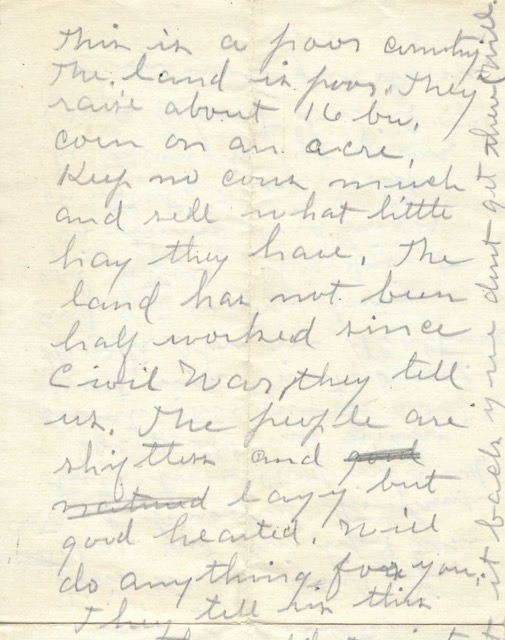 This is a poor country
The land is poor. They
raise about 16 bu.
corn on an acre.
Keep no cows much
and sell what little
hay they have. The
land has not been
half worked since
Civil War, they tell
us. The people are
shiftless and good
natured lazy but
good hearted. Will
do anything for you.
They tell us this
it back if we dont get there